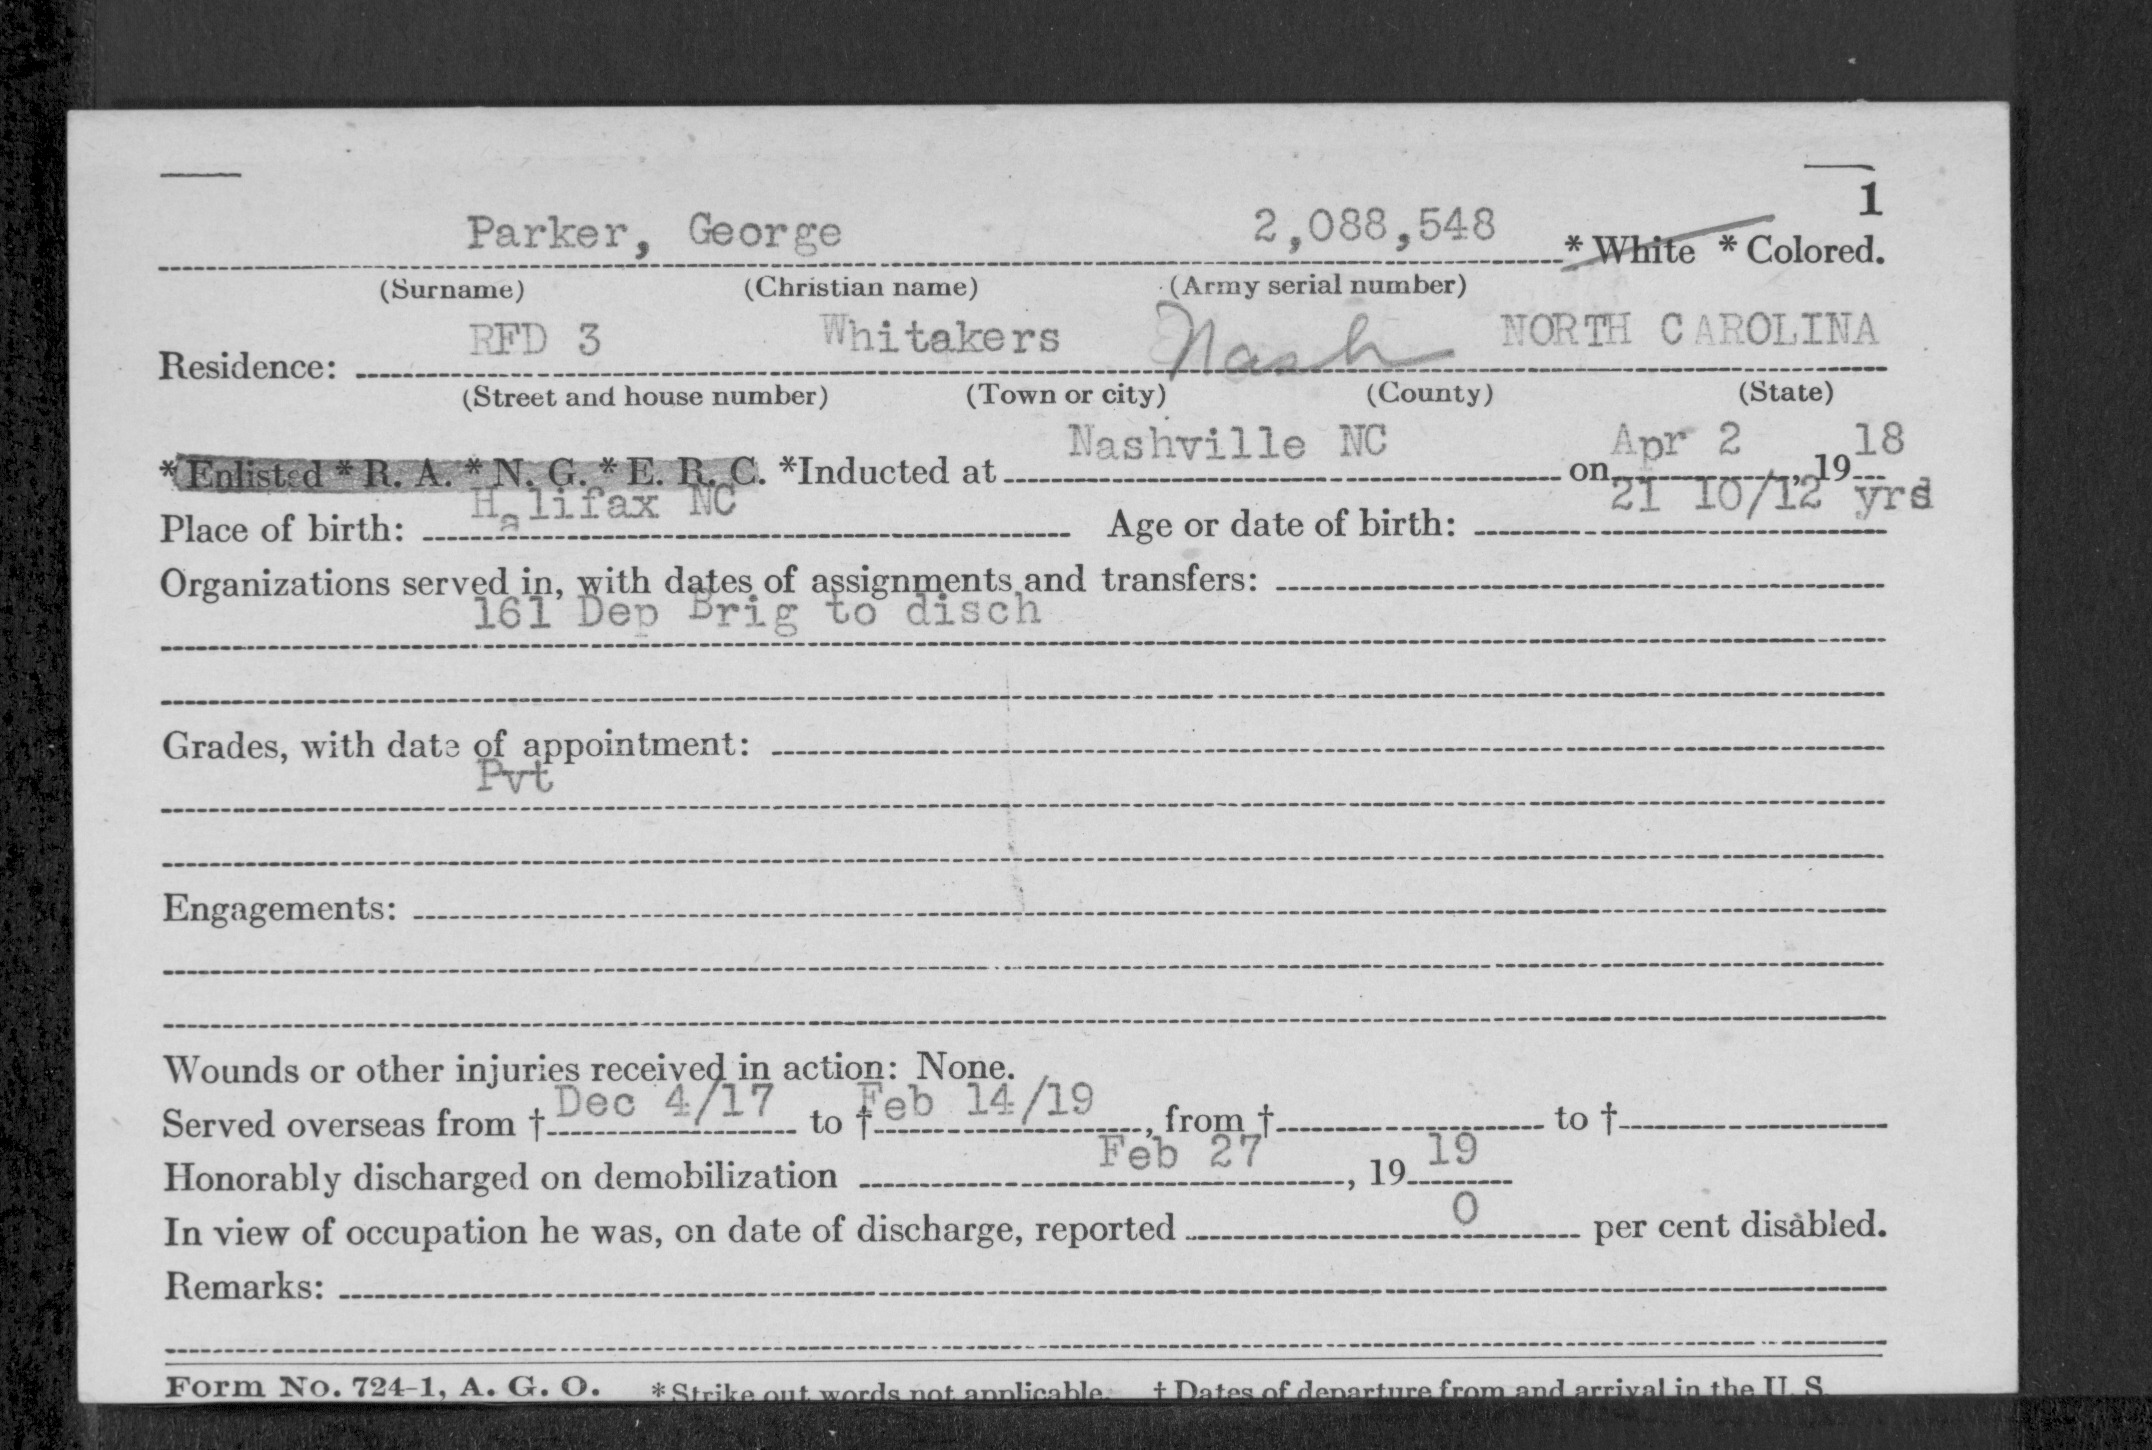 1
Parker, George 2,088,548 * White * Colored.
(Surname) (Christian name) (Army serial number)
RFD 3 Whitakers Nash NORTH CAROLINA
Residence:
(Street and house number) (Town or city) (County) (State)
Nashville NC Apr 2 18
*Enlisted * R. A. * N. G. * E. R. C. *Inducted at on , 19
Halifax NC 21 10/12 yrs
Place of birth: Age or date of birth:
Organizations served in, with dates of assignments and transfers:
161 Dep Brig to disch
Grades, with date of appointment:
Pvt
Engagements:
Wounds or other injuries received in action: None.
Served overseas from † Dec 4/17 to † Feb 14/19, from † to †
Honorably discharged on demobilization Feb 27, 19 19
In view of occupation he was, on date of discharge, reported 0 per cent disabled.
Remarks:
Form No. 724-1, A. G. O. * Strike out words not applicable. † Dates of departure from and arrival in the U. S.